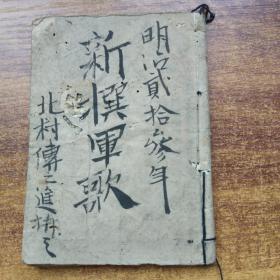 明治貳拾參年
新撰軍歌
北村傳二進